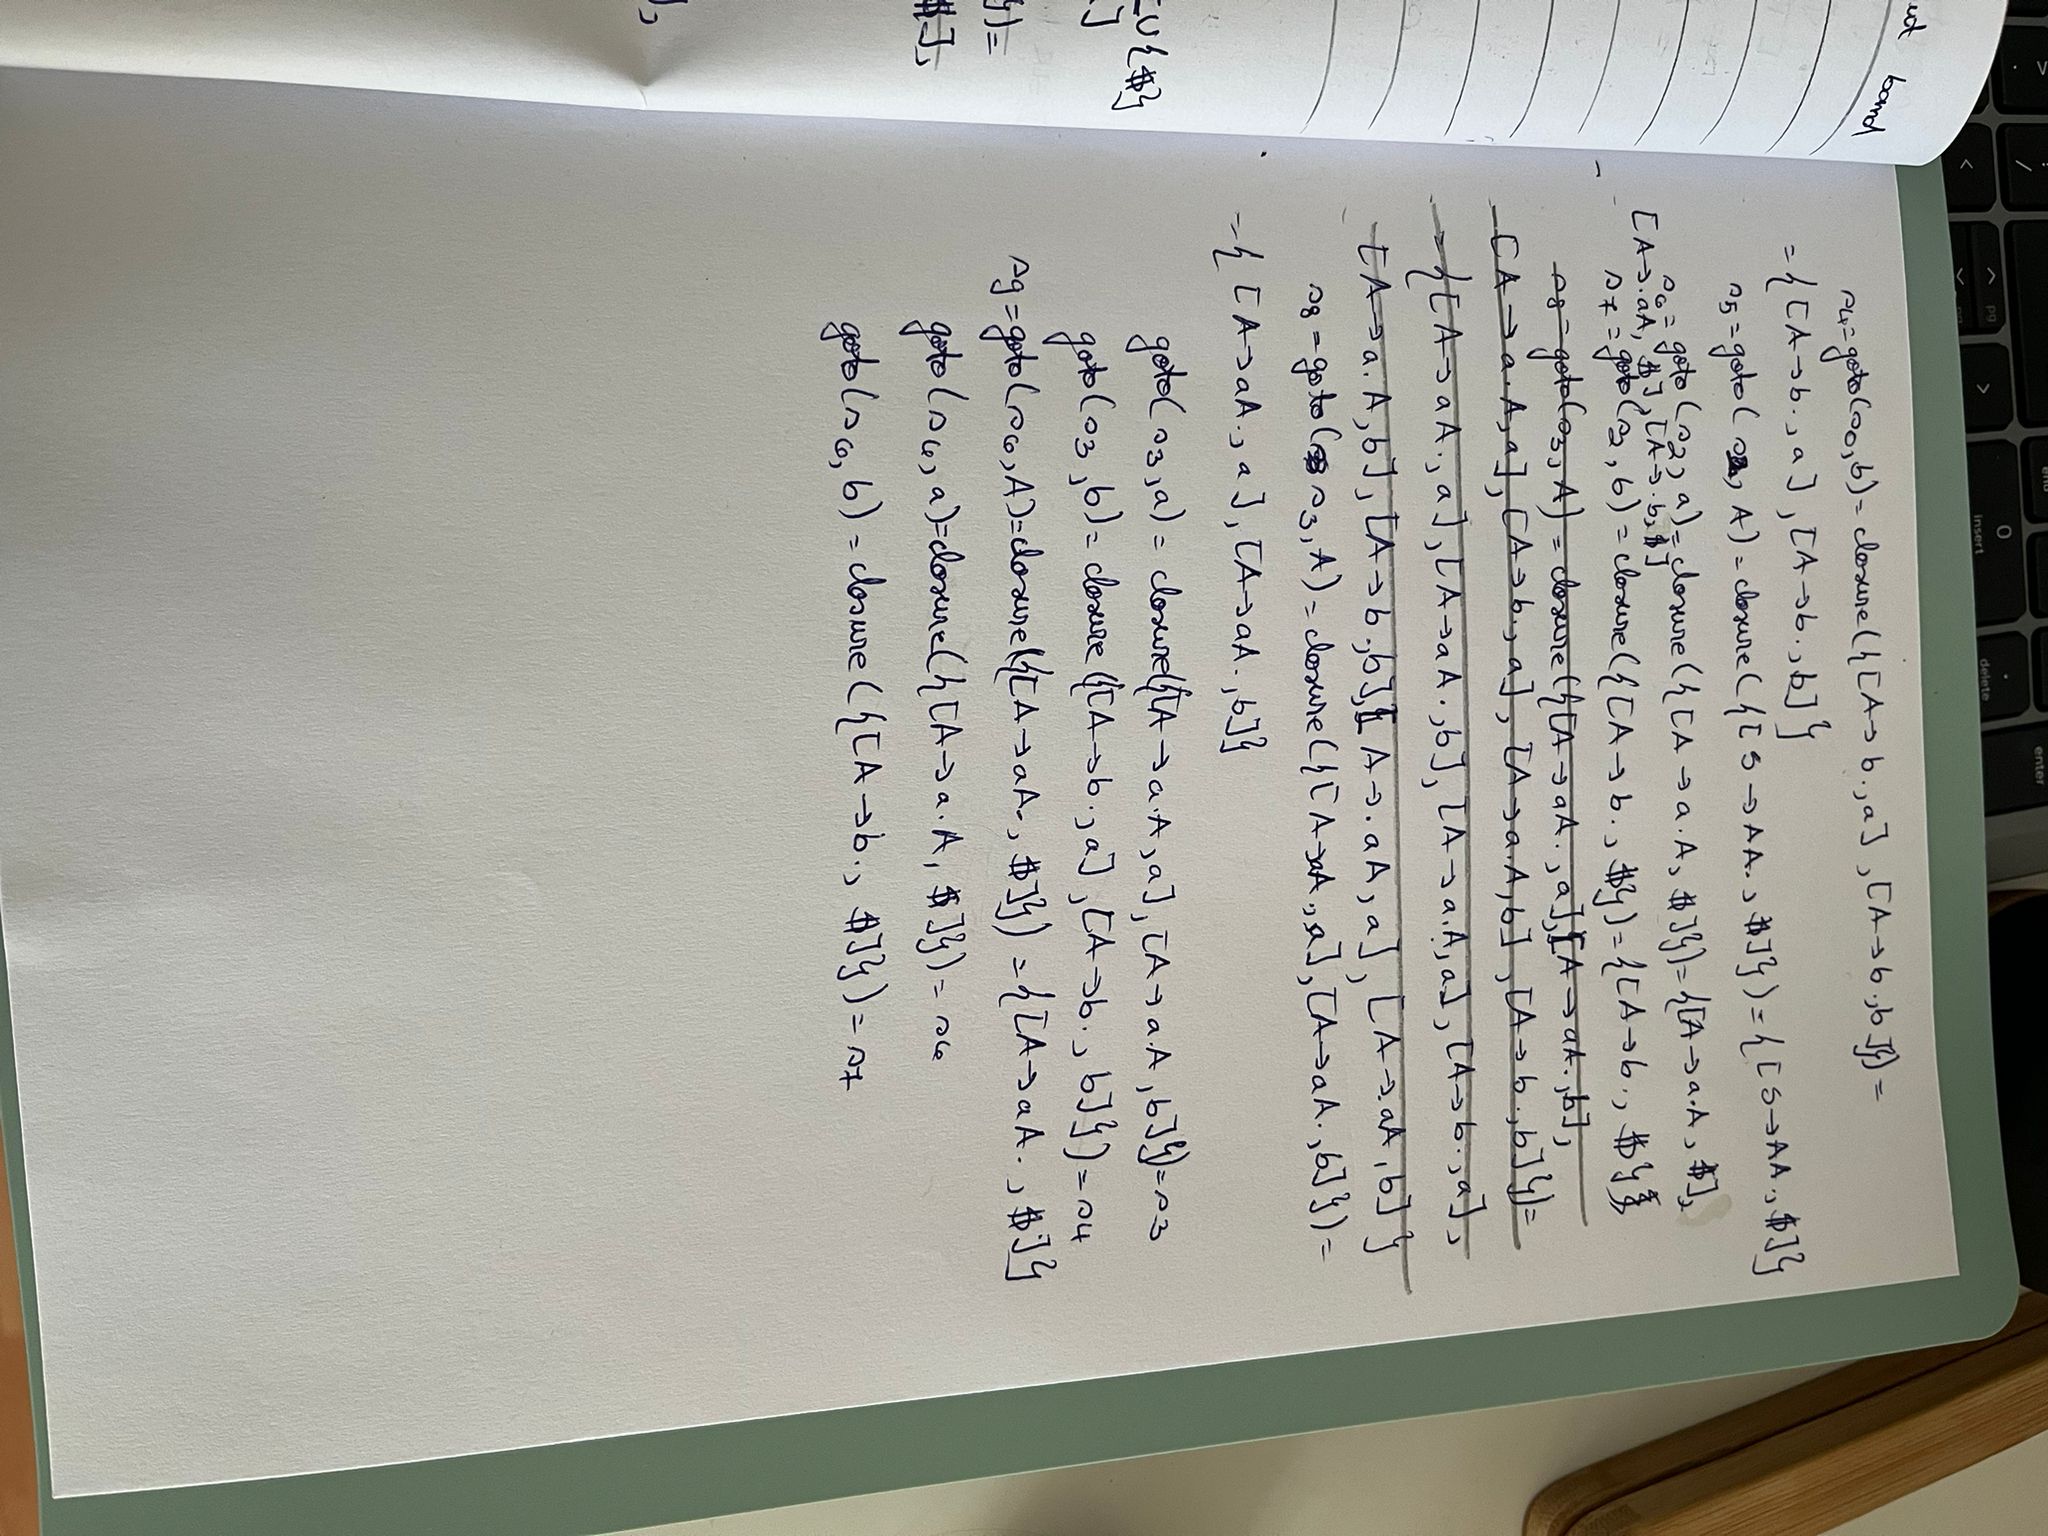 >
.
/
end
enter
^ pg
0
insert
.
delete
<
>
band
s4=goto(s0,b)=closure({[A→b.,a],[A→b.,b]})=
={[A→b.,a],[A→b.,b]}
s5=goto(s2,A)=closure({[S→AA.,$]})={[S→AA.,$]}
s6=goto(s2,a)=closure({[A→a.A,$]})={[A→a.A,$],
[A→.aA,$],[A→.b,$]
s7=goto(s2,b)=closure({[A→b.,$})={[A→b.,$}
s8=goto(s3,A)=closure({[A→aA.,a],[A→aA.,b],
[A→a.A,a],[A→b.,a],[A→a.A,b],[A→b.,b]})=
={[A→aA.,a],[A→aA.,b],[A→a.A,a],[A→b.,a],
[A→a.A,b],[A→b.,b],[A→.aA,a],[A→.aA,b]}
s8=goto(s3,A)=closure({[A→aA.,a],[A→aA.,b]})=
={[A→aA.,a],[A→aA.,b]}
goto(s3,a)=closure({[A→a.A,a],[A→a.A,b]})=s3
goto(s3,b)=closure({[A→b.,a],[A→b.,b]})=s4
s9=goto(s6,A)=closure({[A→aA.,$]})={[A→aA.,$]}
goto(s6,a)=closure({[A→a.A,$]})=s6
goto(s6,b)=closure({[A→b.,$]})=s7
U{$}
]
})=
$],
],